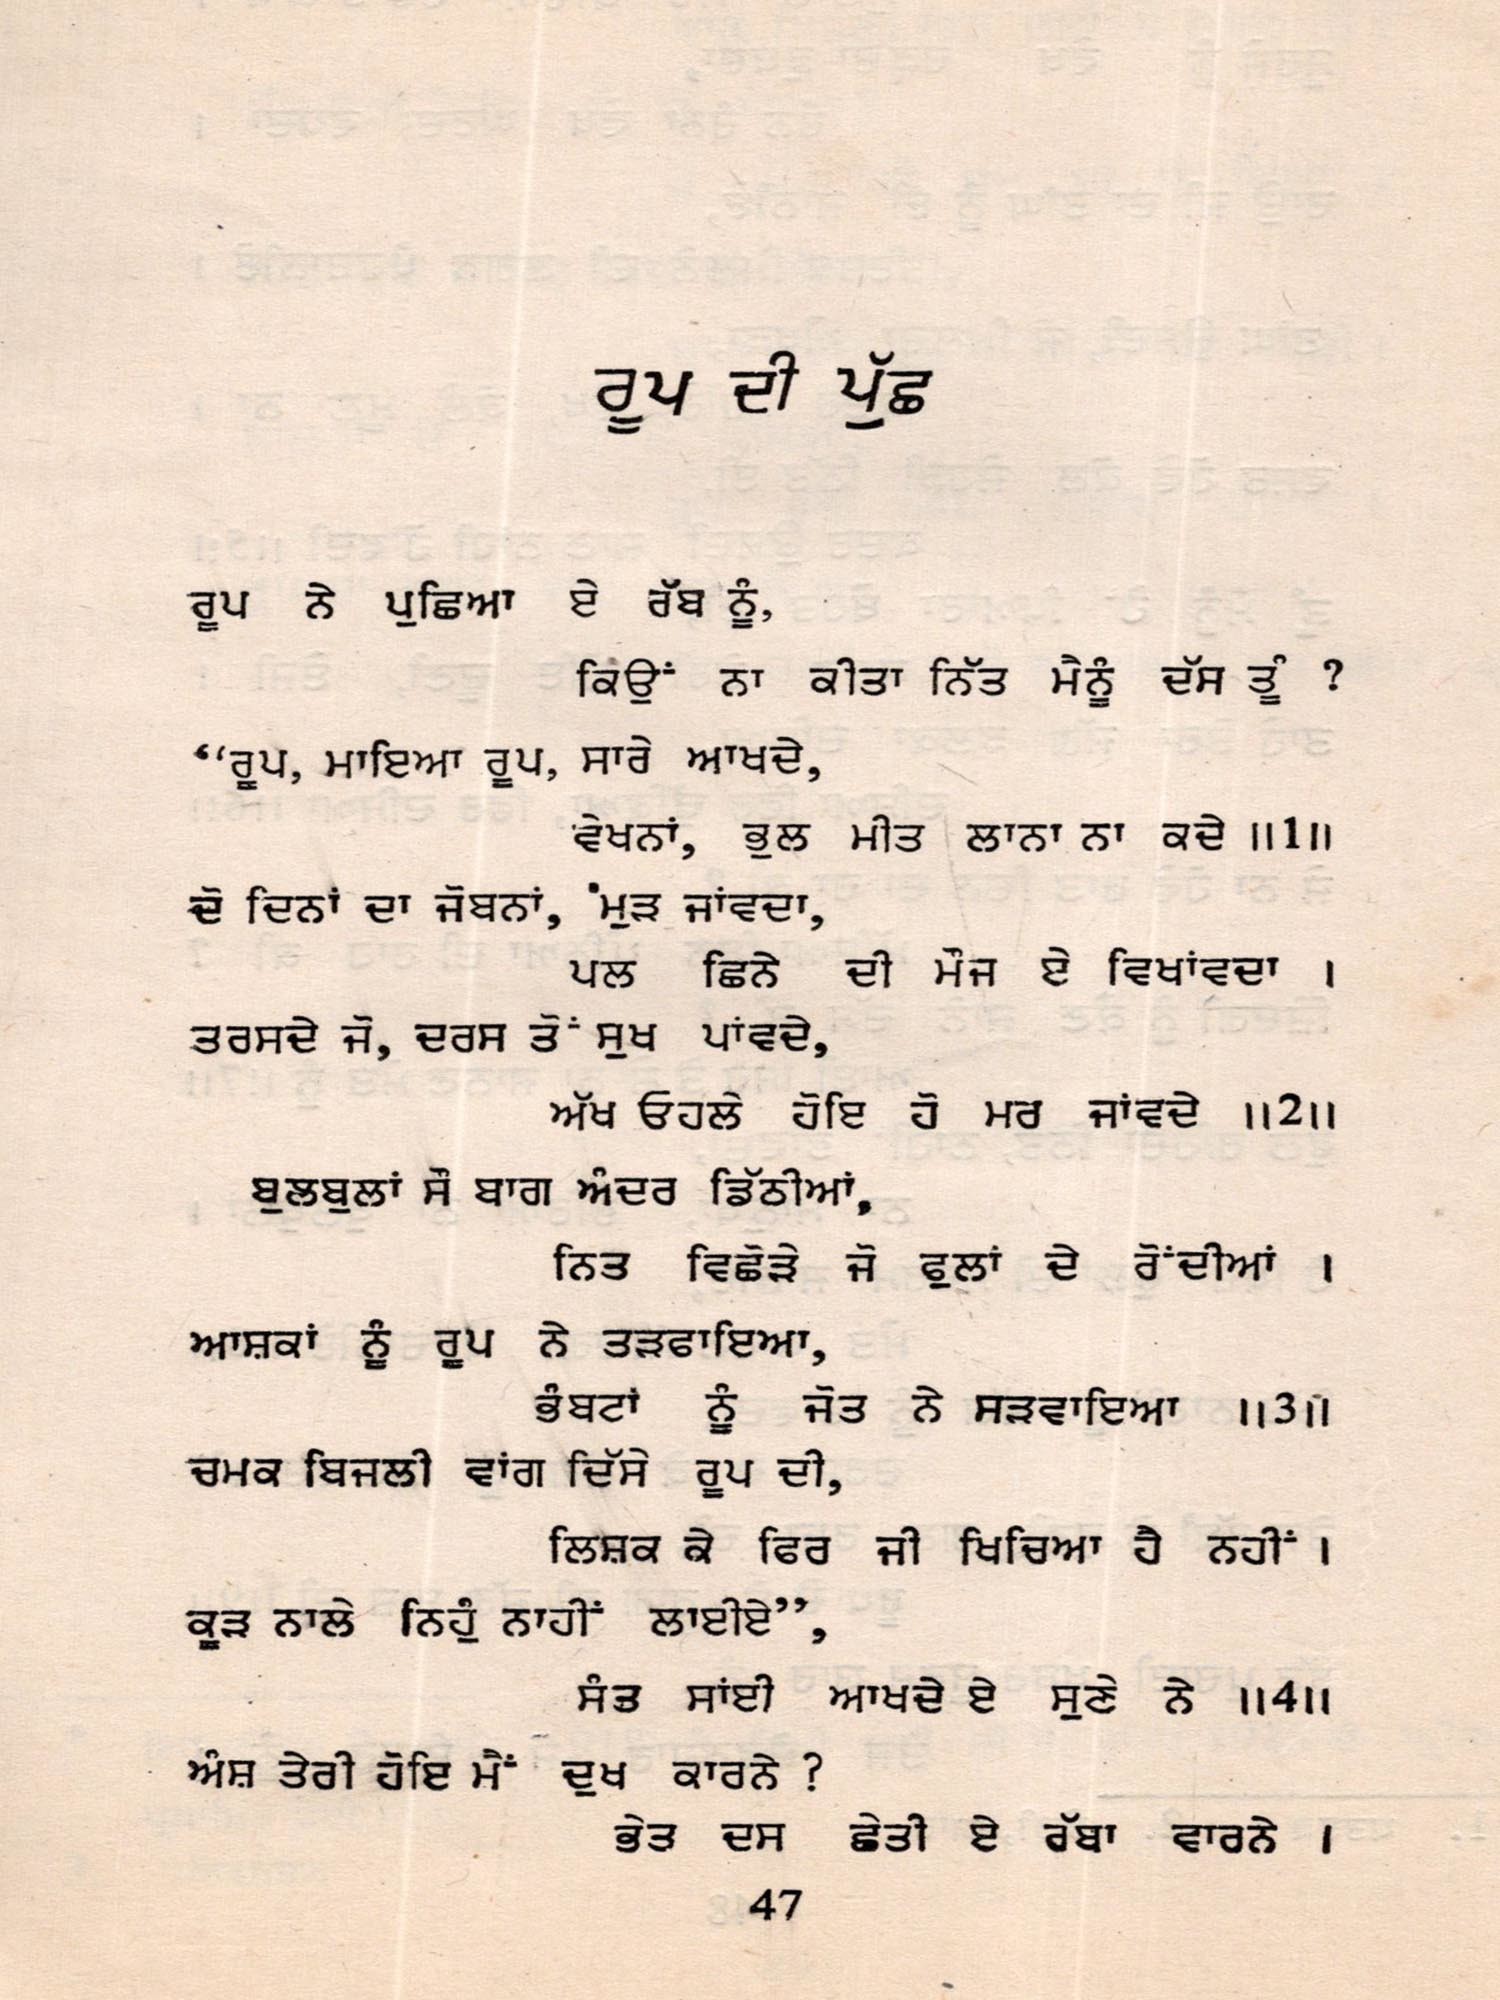 ਰੂਪ ਦੀ ਪੁੱਛ
ਰੂਪ ਨੇ ਪੁਛਿਆ ਏ ਰੱਬ ਨੂੰ,
ਕਿਉਂ ਨਾ ਕੀਤਾ ਨਿੱਤ ਮੈਨੂੰ ਦੱਸ ਤੂੰ ?
“ਰੂਪ, ਮਾਇਆ ਰੂਪ, ਸਾਰੇ ਆਖਦੇ,
ਵੇਖਨਾਂ, ਭੁਲ ਮੀਤ ਲਾਨਾ ਨਾ ਕਦੇ ॥1॥
ਦੋ ਦਿਨਾਂ ਦਾ ਜੋਬਨਾਂ, ਮੁੜ ਜਾਂਵਦਾ,
ਪਲ ਛਿਨੇ ਦੀ ਮੌਜ ਏ ਵਿਖਾਂਵਦਾ ।
ਤਰਸਦੇ ਜੋ, ਦਰਸ ਤੋਂ ਸੁਖ ਪਾਂਵਦੇ,
ਅੱਖ ਓਹਲੇ ਹੋਇ ਹੋ ਮਰ ਜਾਂਵਦੇ ॥2॥
ਬੁਲਬੁਲਾਂ ਸੌ ਬਾਗ ਅੰਦਰ ਡਿੱਠੀਆਂ,
ਨਿਤ ਵਿਛੋੜੇ ਜੋ ਫੁਲਾਂ ਦੇ ਰੋਂਦੀਆਂ ।
ਆਸ਼ਕਾਂ ਨੂੰ ਰੂਪ ਨੇ ਤੜਫਾਇਆ,
ਭੰਬਟਾਂ ਨੂੰ ਜੋਤ ਨੇ ਸੜਵਾਇਆ ॥3॥
ਚਮਕ ਬਿਜਲੀ ਵਾਂਗ ਦਿੱਸੇ ਰੂਪ ਦੀ,
ਲਿਸ਼ਕ ਕੇ ਫਿਰ ਜੀ ਖਿਚਿਆ ਹੈ ਨਹੀਂ ।
ਕੂੜ ਨਾਲੇ ਨਿਹੁੰ ਨਾਹੀਂ ਲਾਈਏ”,
ਸੰਤ ਸਾਂਈ ਆਖਦੇ ਏ ਸੁਣੇ ਨੇ ॥4॥
ਅੰਸ਼ ਤੇਰੀ ਹੋਇ ਮੈਂ ਦੁਖ ਕਾਰਨੇ ?
ਭੇਤ ਦਸ ਛੇਤੀ ਏ ਰੱਬਾ ਵਾਰਨੇ ।
47